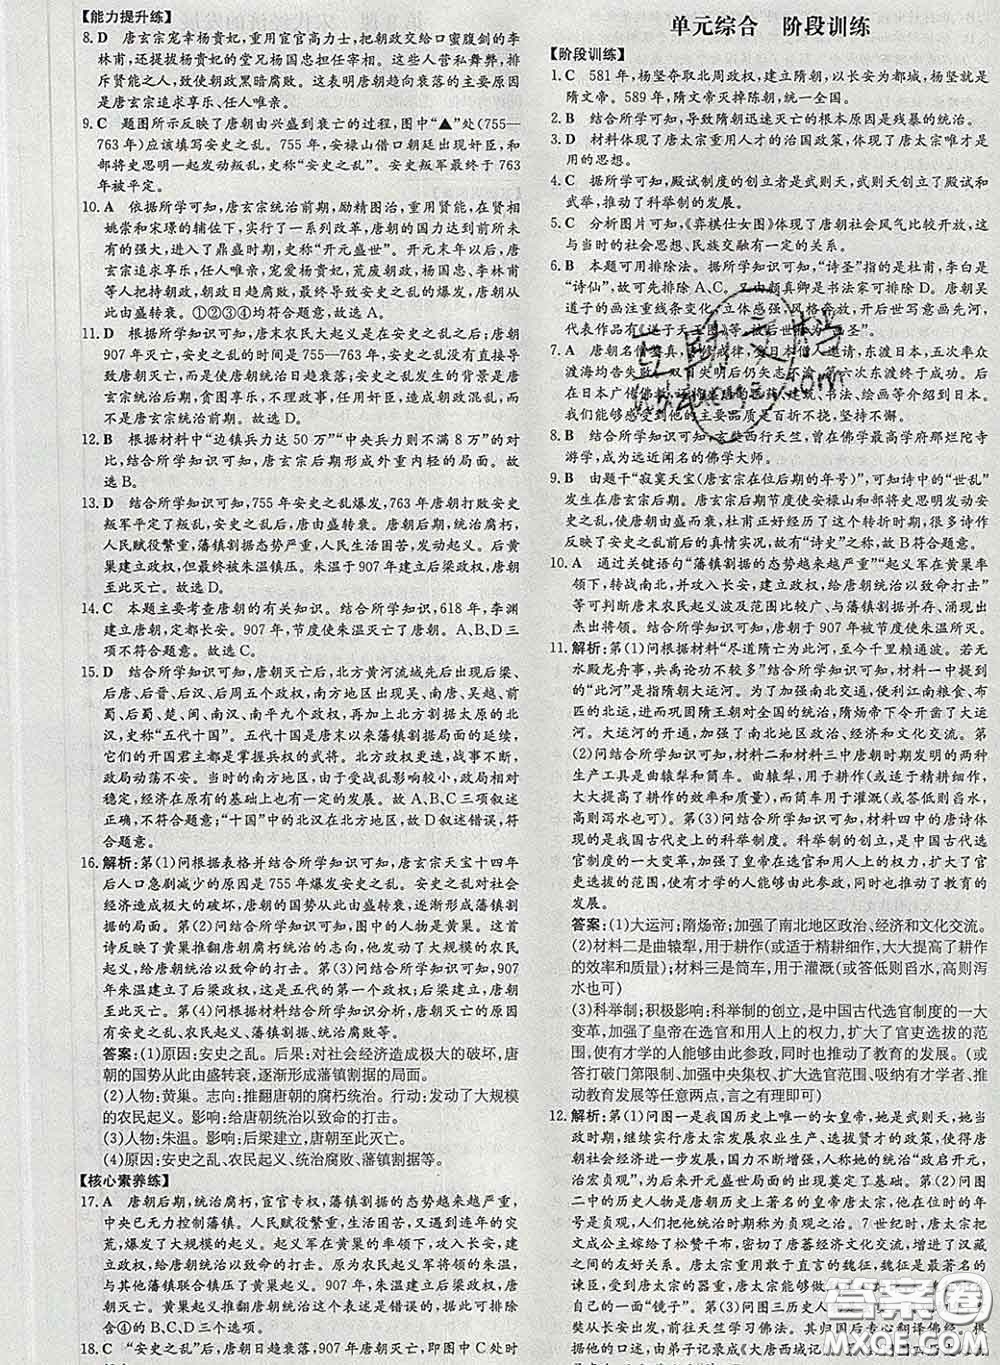 【能力提升练】
8. D　唐玄宗宠幸杨贵妃，重用宦官高力士，把朝政交给口蜜腹剑的李
林甫，还提拔杨贵妃的堂兄杨国忠担任宰相。这些人营私舞弊，排
斥贤能之人，致使朝政黑暗腐败。这表明唐朝趋向衰落的主要原因
是唐玄宗追求享乐、任人唯亲。
9. C　题图所示反映了唐朝由兴盛到衰亡的过程，图中“▲”处(755—
763年)应该填写安史之乱。755年，安禄山借口朝廷出现奸臣，和
部将史思明一起发动叛乱，史称“安史之乱”。安史叛军最终于763
年被平定。
10. A　依据所学可知，唐玄宗统治前期，励精图治，重用贤能，在贤相
姚崇和宋璟的辅佐下，实行了一系列改革，唐朝的国力达到前所未
有的强大，进入了鼎盛时期，史称“开元盛世”。开元末年以后，唐
玄宗追求享乐，任人唯亲，宠爱杨贵妃，荒废朝政，杨国忠、李林甫
等人掌权，朝政日趋腐败，最终导致安史之乱的爆发，唐朝自
此由盛转衰。①②③④均符合题意，故选A。
11. D　根据所学可知，唐末农民大起义是在安史之乱之后爆发，唐朝
907年灭亡，安史之乱的时间是755—763年，安史之乱没有直接导
致唐朝灭亡，但使唐朝统治日趋衰落；安史之乱发生的背景是唐
玄宗统治后期，贪图享乐，不理政事，任用奸臣，造成朝政混乱，而不
是唐玄宗统治前期。故选D。
12. B　根据材料中“边镇兵力达50万”“中央兵力则不满8万”的对
比，结合所学知识可知，唐玄宗后期形成外重内轻的局面。故
选B。
13. D　结合所学知识可知，755年安史之乱爆发，763年唐朝打败安史
叛军平定了叛乱，安史之乱后，唐由盛转衰。安史之乱后，统治腐朽，
人民赋役繁重，藩镇割据态势严重，人民困苦不堪，发动起义。后黄
巢建立政权，但最终被朱温镇压。朱温于907年建立后梁政权，唐朝
至此灭亡。故选D。
14. C　本题主要考查唐朝的有关知识。结合所学可知，618年，李渊
建立唐朝，定都长安。907年，节度使朱温灭亡了唐朝。A、B、D三
项不符合题意。故选C。
15. D　结合所学知识可知，唐朝灭亡后，北方黄河流域先后出现后梁、
后唐、后晋、后汉、后周五个政权，南方地区出现吴、南唐、吴越、前
蜀、后蜀、楚、闽、南汉、南平九个政权，再加上北方割据太原的北
汉，史称“五代十国”。五代十国是唐末以来藩镇割据局面的延续，
它们的开国君主都是掌握兵权的武将。北方政权更替频繁，政
局动荡不安。当时的南方地区，虽受战乱影响较小，政局相对
稳定，经济在原有的基础上也有一定的发展。故A、B、C三项叙述
正确，不符合题意；“十国”中的北汉在北方地区，故D叙述错误，
符合题意。
16. 解析：第(1)问根据表格并结合所学知识可知，唐玄宗天宝十四年
后人口急剧减少的原因是755年爆发安史之乱。安史之乱对社会
经济造成极大的破坏，唐朝的国势从此由盛转衰，逐渐形成藩镇割
据的局面。第(2)问结合所学知识可知，图中的人物是黄巢。这
首诗反映了黄巢推翻唐朝腐朽统治的志向，他发动了大规模的农民
起义，给唐朝统治以致命的打击。第(3)问结合所学可知，907
年朱温建立了后梁政权，这是五代的第一个政权，唐朝至
此灭亡。第(4)问根据材料并结合所学知识分析，唐朝灭亡的原因
有安史之乱、农民起义、藩镇割据、统治腐败等。
答案：(1)原因：安史之乱。后果：对社会经济造成极大的破坏，唐
朝的国势从此由盛转衰，逐渐形成藩镇割据的局面。
(2)人物：黄巢。志向：推翻唐朝的腐朽统治。行动：发动了大规模
的农民起义。影响：给唐朝统治以致命的打击。
(3)人物：朱温。影响：后梁建立，唐朝至此灭亡。
(4)原因：安史之乱、农民起义、统治腐败、藩镇割据等。
【核心素养练】
17. A　唐朝后期，统治腐朽，宦官专权，藩镇割据的态势越来越严重，
中央已无力控制藩镇。人民赋役繁重，生活困苦，再加上连年的灾
荒，爆发了大规模的起义。起义军在黄巢的率领下，攻入长安，建立
政权，给唐朝统治以致命的打击。黄巢的部将朱温叛变后投降唐朝，
与其他藩镇联合镇压了黄巢起义。907年，朱温建立后梁政权，唐
朝至此灭亡。黄巢起义推翻唐朝的说法与史实不符，故可排除包
含④的B、C、D三个选项。
18. C　“安史之乱”后，唐朝日趋衰落，即图中C处所
单元综合　阶段训练
【阶段训练】
1. C　581年，杨坚夺取北周政权，建立隋朝，以长安为都城，杨坚就是
隋文帝。589年，隋文帝灭掉陈朝，统一全国。
2. B　结合所学可知，导致隋朝迅速灭亡的根本原因是残暴的统治。
3. D　材料体现了唐太宗重用人才的治国政策，体现了唐太宗唯才是
用的思想。
4. C　根据所学可知，殿试制度的创立者是武则天，武则天创立了殿试和
武举，推动了科举制的发展。
5. C　分析图片可知，《弈棋仕女图》体现了唐朝社会风气比较开放，这
与当时的社会思想、民族交融有一定的关系。
6. B　本题可用排除法。据所学知识可知，“诗圣”指的是杜甫，李白是
“诗仙”，故可先排除A、C。又知颜真卿是书法家可排除D。唐朝吴
道子的画注重线条变化，立体感强，风格奔放，开后世写意画先河，
代表作品有《送子天王图》等，被后世尊称为“画圣”。
7. A　唐朝名僧鉴真，精修戒律，受日本僧人邀请，东渡日本，五次率众
渡海均告失败，双目失明后仍矢志不渝，第六次东渡终于成功。在
日本广传佛法，还将唐朝的医药、建筑、书法、绘画等介绍到日本。
我们能够感受到他的主要品质是百折不挠、坚持不懈。
8. B　结合所学知识可知，玄奘西行天竺，曾在佛学最高学府那烂陀寺
游学，成为远近闻名的佛学大师。
9. B　由题干“寂寞天宝(唐玄宗在位后期的年号)”，可知诗中的“世乱”
发生在唐玄宗后期。唐玄宗后期节度使安禄山和部将史思明发动安
史之乱，唐朝由盛而衰，杜甫正好经历了这个转折时期，很多诗作
反映了安史之乱前后的真情实况，故有“诗史”之称，故B符合题意。
10. A　通过关键语句“藩镇割据的态势越来越严重”“起义军在黄巢率
领下，转战南北，并攻入长安，建立政权，给唐朝统治以致命打击”
等可判断唐末农民起义波及范围比较广、与藩镇割据并存、涌现出
杰出将领。故A符合题意；唐朝于907年被节度使朱温所灭。
11. 解析：第(1)问根据材料“尽道隋亡为此河，至今千里赖通波。若无
水殿龙舟事，共禹论功不较多”结合所学知识可知，材料一中提到
的“此河”是指隋朝大运河。为了加强南北交通，便利江南粮食、布
匹的北运，进而巩固隋王朝对全国的统治，隋炀帝下令开凿了大运
河。大运河的开通，加强了南北地区政治、经济和文化交流。第
(2)问结合所学知识可知，材料二和材料三中唐朝时期发明的两种
生产工具是曲辕犁和筒车。用于耕作(或适于精耕细作，
大大提高了耕作的效率和质量)，而筒车用于灌溉(或能低则舀水，
高则泻水)。第(3)问结合所学知识可知，材料四中的唐诗体
现的是我国古代史上的科举制度。科举制的创立，是中国古代选
官制度的一大变革，加强了皇帝在选官和用人上的权力，扩大了官
吏选拔的范围，使有才学的人能够由此参政，同时也推动了教育的发
展。
答案：(1)大运河；隋炀帝；加强了南北地区政治、经济和文化交流。
(2)材料二是曲辕犁，用于耕作(或适于精耕细作，大大提高了耕作
的效率和质量)；材料三是筒车，用于灌溉(或答低则舀水，高则泻
水也可)
(3)科举制；积极影响：科举制的创立，是中国古代选官制度的一大
变革，加强了皇帝在选官和用人上的权力，扩大了官吏选拔的范
围，使有才学的人能够由此参政，同时也推动了教育的发展。(或
答打破门第限制、加强中央集权、扩大选官范围、吸纳有才学者、推
动教育发展等任意两点，言之有理即可)
12. 解析：第(1)问图一是我国历史上唯一的女皇帝，她是武则天，她当
政时期，继续实行唐太宗发展农业生产、选拔贤才的政策，使唐朝
社会经济进一步发展，国力不断增强，史称她的统治“政启开元，
治宏贞观”，为后来唐朝开元盛世局面的出现奠定了基础。第(2)问图
二中的历史人物是唐朝历史上著名的皇帝唐太宗，他在位时的年
号是贞观，人们把他统治时期称为贞观之治。7世纪时，唐太宗把
文成公主嫁给了松赞干布，密切了唐蕃经济文化的交流，增进了汉藏
之间的友好关系。唐太宗时期最著名的谏臣是魏征，魏征是著名的
谏臣，受到唐太宗的器重，唐太宗把他看作
自己的一面“镜子”。第(3)问图三历史人物是玄奘，唐太
宗时期，玄奘西行去天竺学习佛法。归国后专心翻译佛经。根据
他的口述，由弟子记录成书的《大唐西域记》
直而
答案圈
MXQE.COM